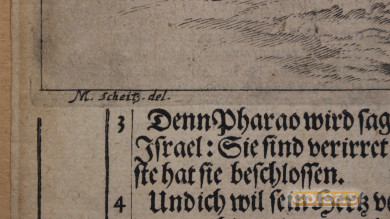 M. Scheitz. del.
3 Denn Pharao wird sag
Israel: Sie sind verirret
ste hat sie beschlossen.
4 Und ich wil sein Hertz v